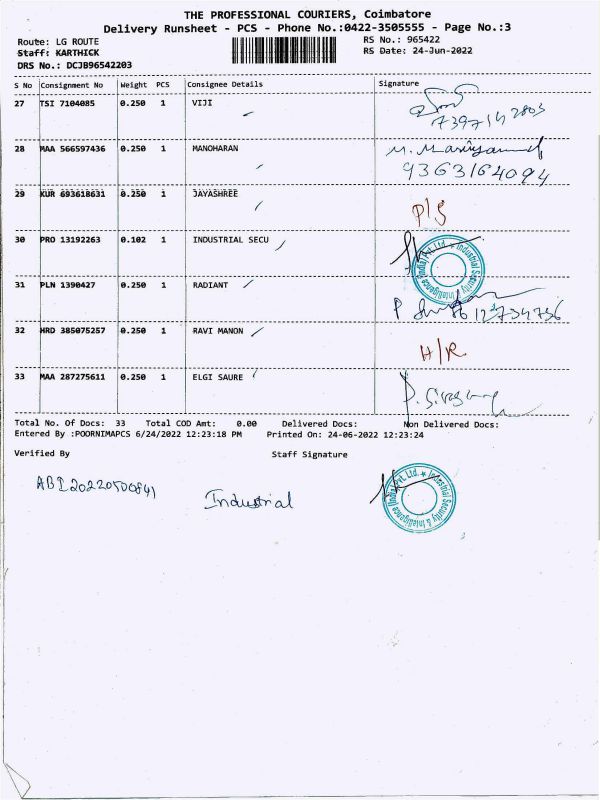 THE PROFESSIONAL COURIERS, Coimbatore
Delivery Runsheet - PCS - Phone No.:0422-3505555 - Page No.:3
Route: LG ROUTE RS No.: 965422
Staff: KARTHICK RS Date: 24-Jun-2022
DRS No.: DCJB96542203
S No Consignment No Weight PCS Consignee Details Signature
27 TSI 7104085 0.250 1 VIJI
28 MAA 566597436 0.250 1 MANOHARAN
9363164094
29 KUR 693618631 0.250 1 JAYASHREE
P/S
30 PRO 13192263 0.102 1 INDUSTRIAL SECU
Industrial Security & Intelligence (India) Pvt. Ltd.
31 PLN 1390427 0.250 1 RADIANT
32 HRD 385075257 0.250 1 RAVI MANON
H/R
33 MAA 287275611 0.250 1 ELGI SAURE
Total No. Of Docs: 33 Total COD Amt: 0.00 Delivered Docs: Non Delivered Docs:
Entered By :POORNIMAPCS 6/24/2022 12:23:18 PM Printed On: 24-06-2022 12:23:24
Verified By Staff Signature
Industrial
Industrial Security & Intelligence (India) Pvt. Ltd.